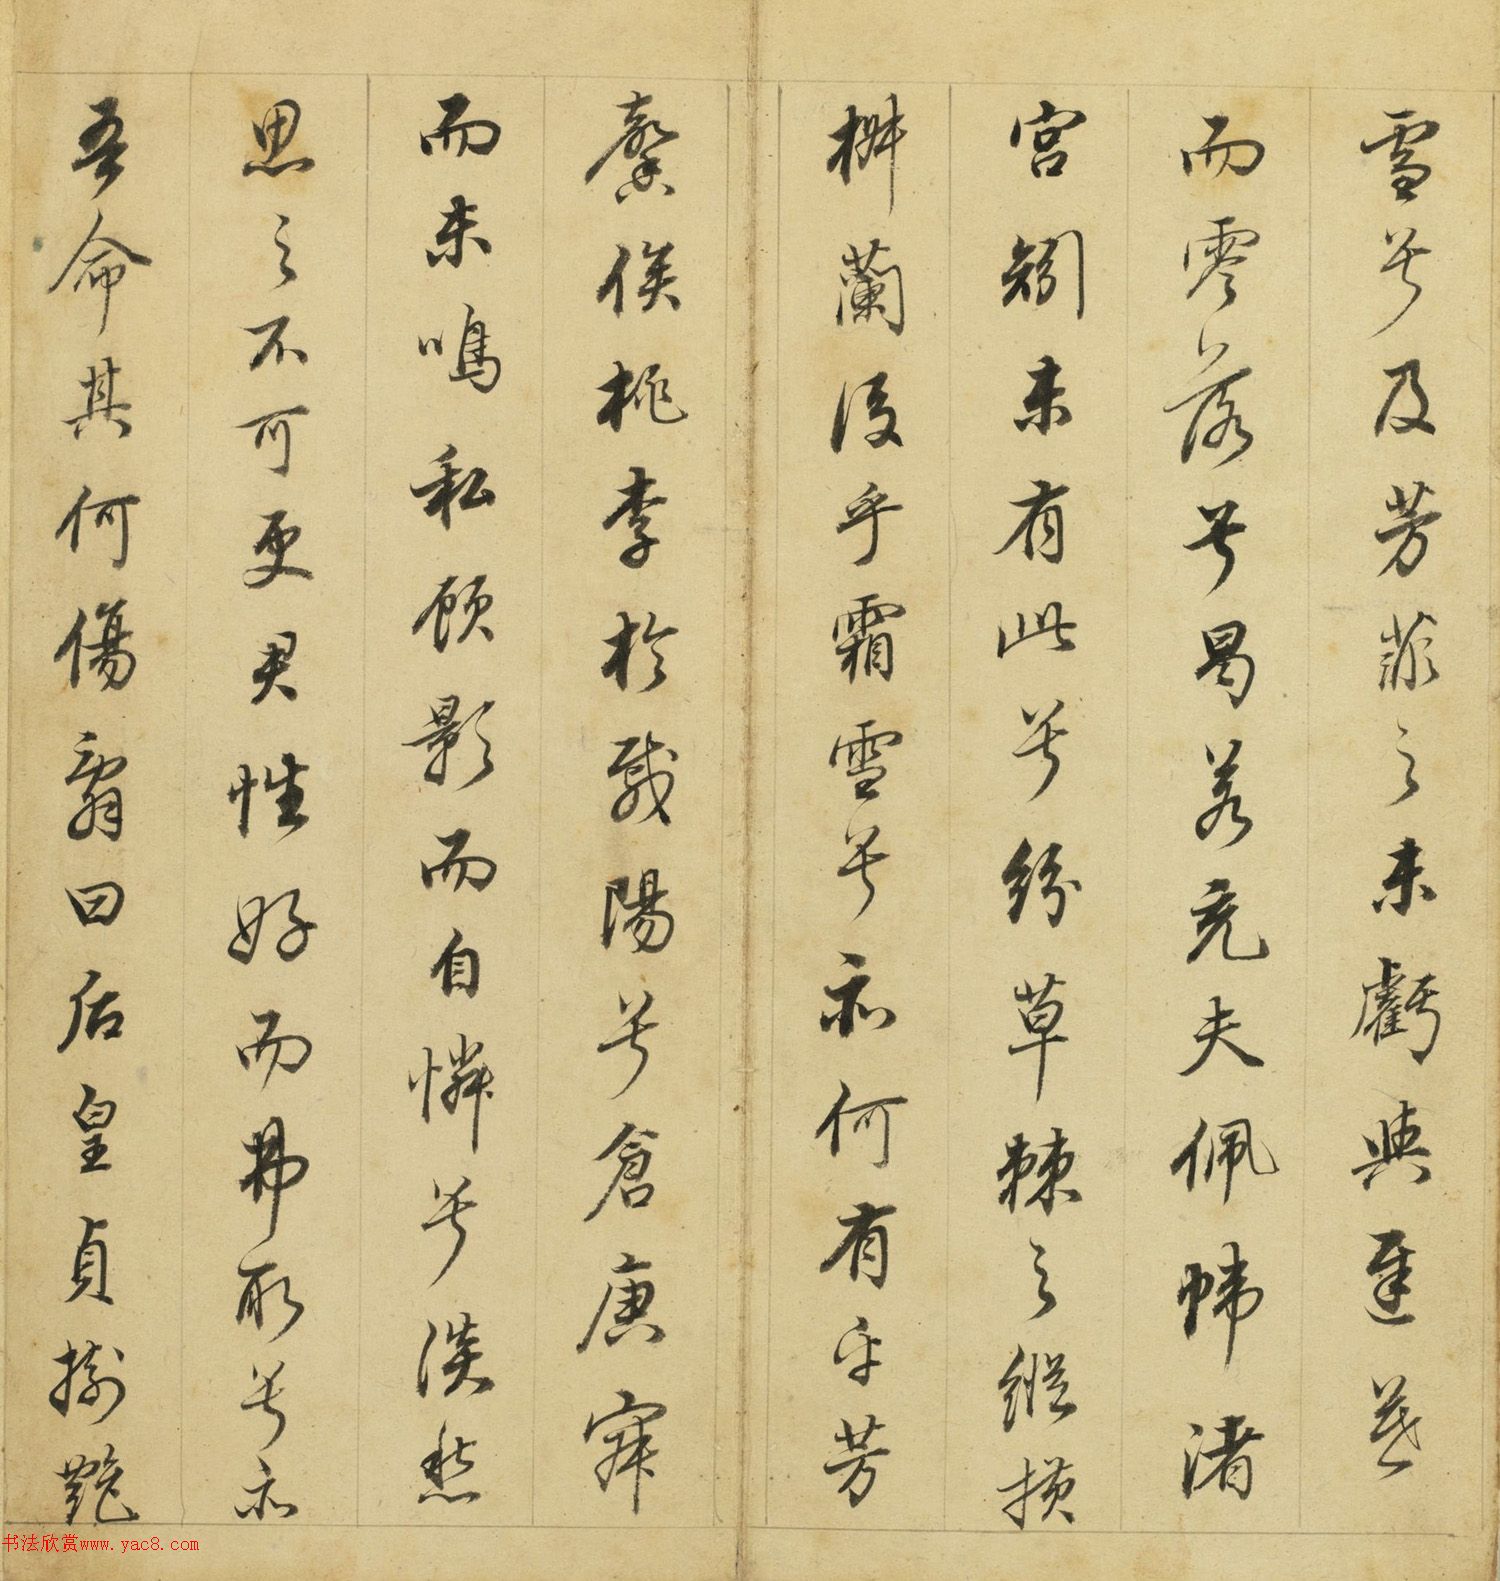 雪兮及芳菲之未虧與遲暮
而零落兮曷若充夫佩幃渚
宮矧未有此兮紛草棘之縱橫
椒蘭沒乎霜雪兮亦何有乎芳
馨俟桃李於載陽兮倉庚寂
而未鳴私顧影而自憐兮淡愁
思之不可更君性好而弗取兮亦
吾命其何傷辭曰后皇貞揄艷
书法欣赏www.yac8.com